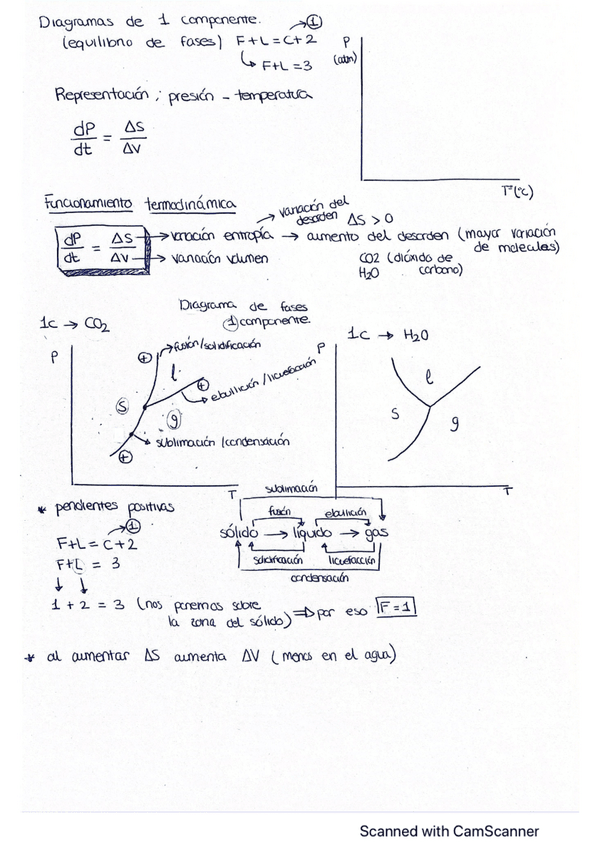 Diagramas de 1 componente. → ①
(equilibrio de fases) F+L = C+2
↳ F+L = 3
P
(atm)
Tª(ºC)
Representación: presión - temperatura
dP/dt = ΔS/ΔV
Funcionamiento termodinámica
→ variación del
desorden ΔS > 0
dP/dt = ΔS/ΔV
→ variación entropía → aumento del desorden (mayor variación
de moleculas)
→ variación volumen
CO2 (dióxido de
carbono)
H2O
Diagrama de fases
① componente.
1c → CO2
P
T
+
→ fusión/solidificación
l
+
→ ebullición/licuefacción
S
g
→ sublimación/condensación
+
1c → H2O
P
T
l
S
g
* pendientes positivas
→ ①
F+L = C+2
F+L = 3
↓ ↓
1 + 2 = 3 (nos ponemos sobre
la zona del sólido) ⇒ por eso F = 1
sublimación
fusión
ebullición
sólido → líquido → gas
solidificación
licuefacción
condensación
* al aumentar ΔS aumenta ΔV (menos en el agua)
Scanned with CamScanner